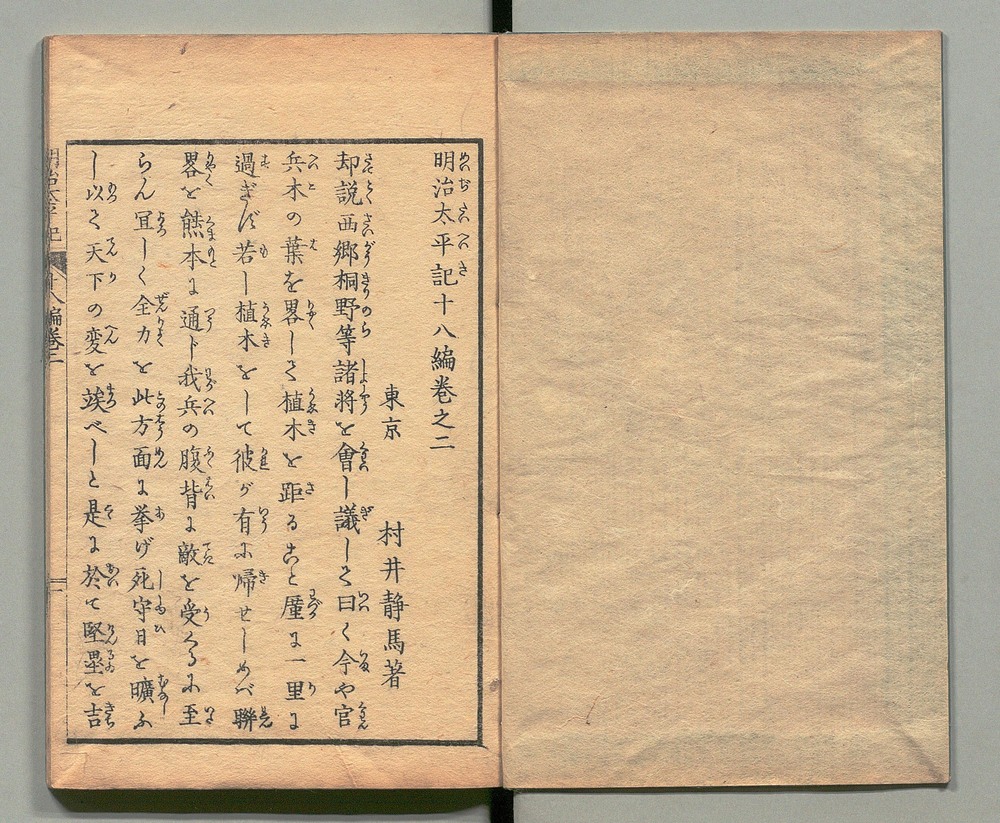 明治太平記十八編卷之二
東京 村井静馬著
却説西郷桐野等諸将を會し議して曰く今や官
兵木の葉を畧して植木を距ること厪に一里に
過ぎず若し植木をして彼が有に帰せしめバ聯
畧を熊本に通じ我兵の腹背に敵を受くるに至
らん冝しく全力を此方面に挙げ死守日を曠ふ
し以て天下の変を竢べしと是に於て堅塁を吉
明治太平記 十八編卷二